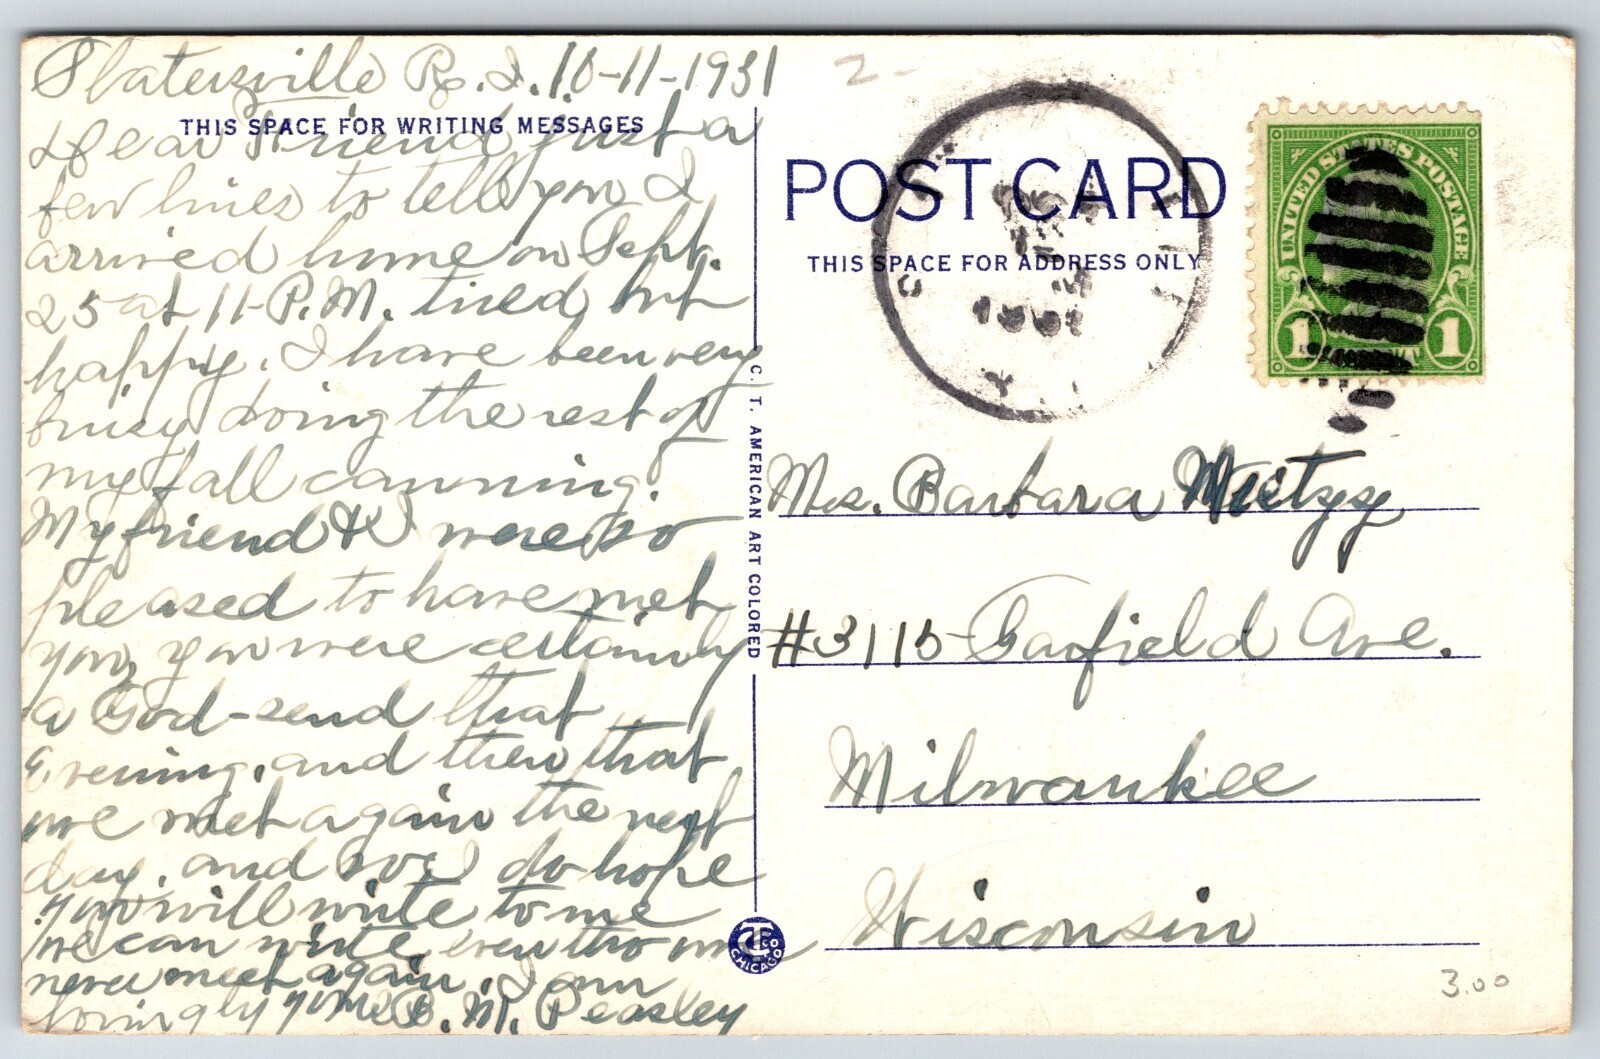 Slatersville R. I. 10-11-1931
THIS SPACE FOR WRITING MESSAGES
Dear Friend just a
few lines to tell you I
arrived home on Sept.
25 at 11-P.M. tired but
happy. I have been very
busy doing the rest of
my fall canning.
My friend & I were so
pleased to have met
you, you were certainly
a God-send that
evening, and then that
we met again the next
day, and we do hope
you will write to me
we can write even tho we
never meet again. I am
lovingly yours B. M. Peasley
C. T. AMERICAN ART COLORED
CT CO CHICAGO
2-
POST CARD
THIS SPACE FOR ADDRESS ONLY
UNITED STATES POSTAGE
1 1
Mrs. Barbara
#3115 Garfield Ave.
Milwaukee
Wisconsin
3.00